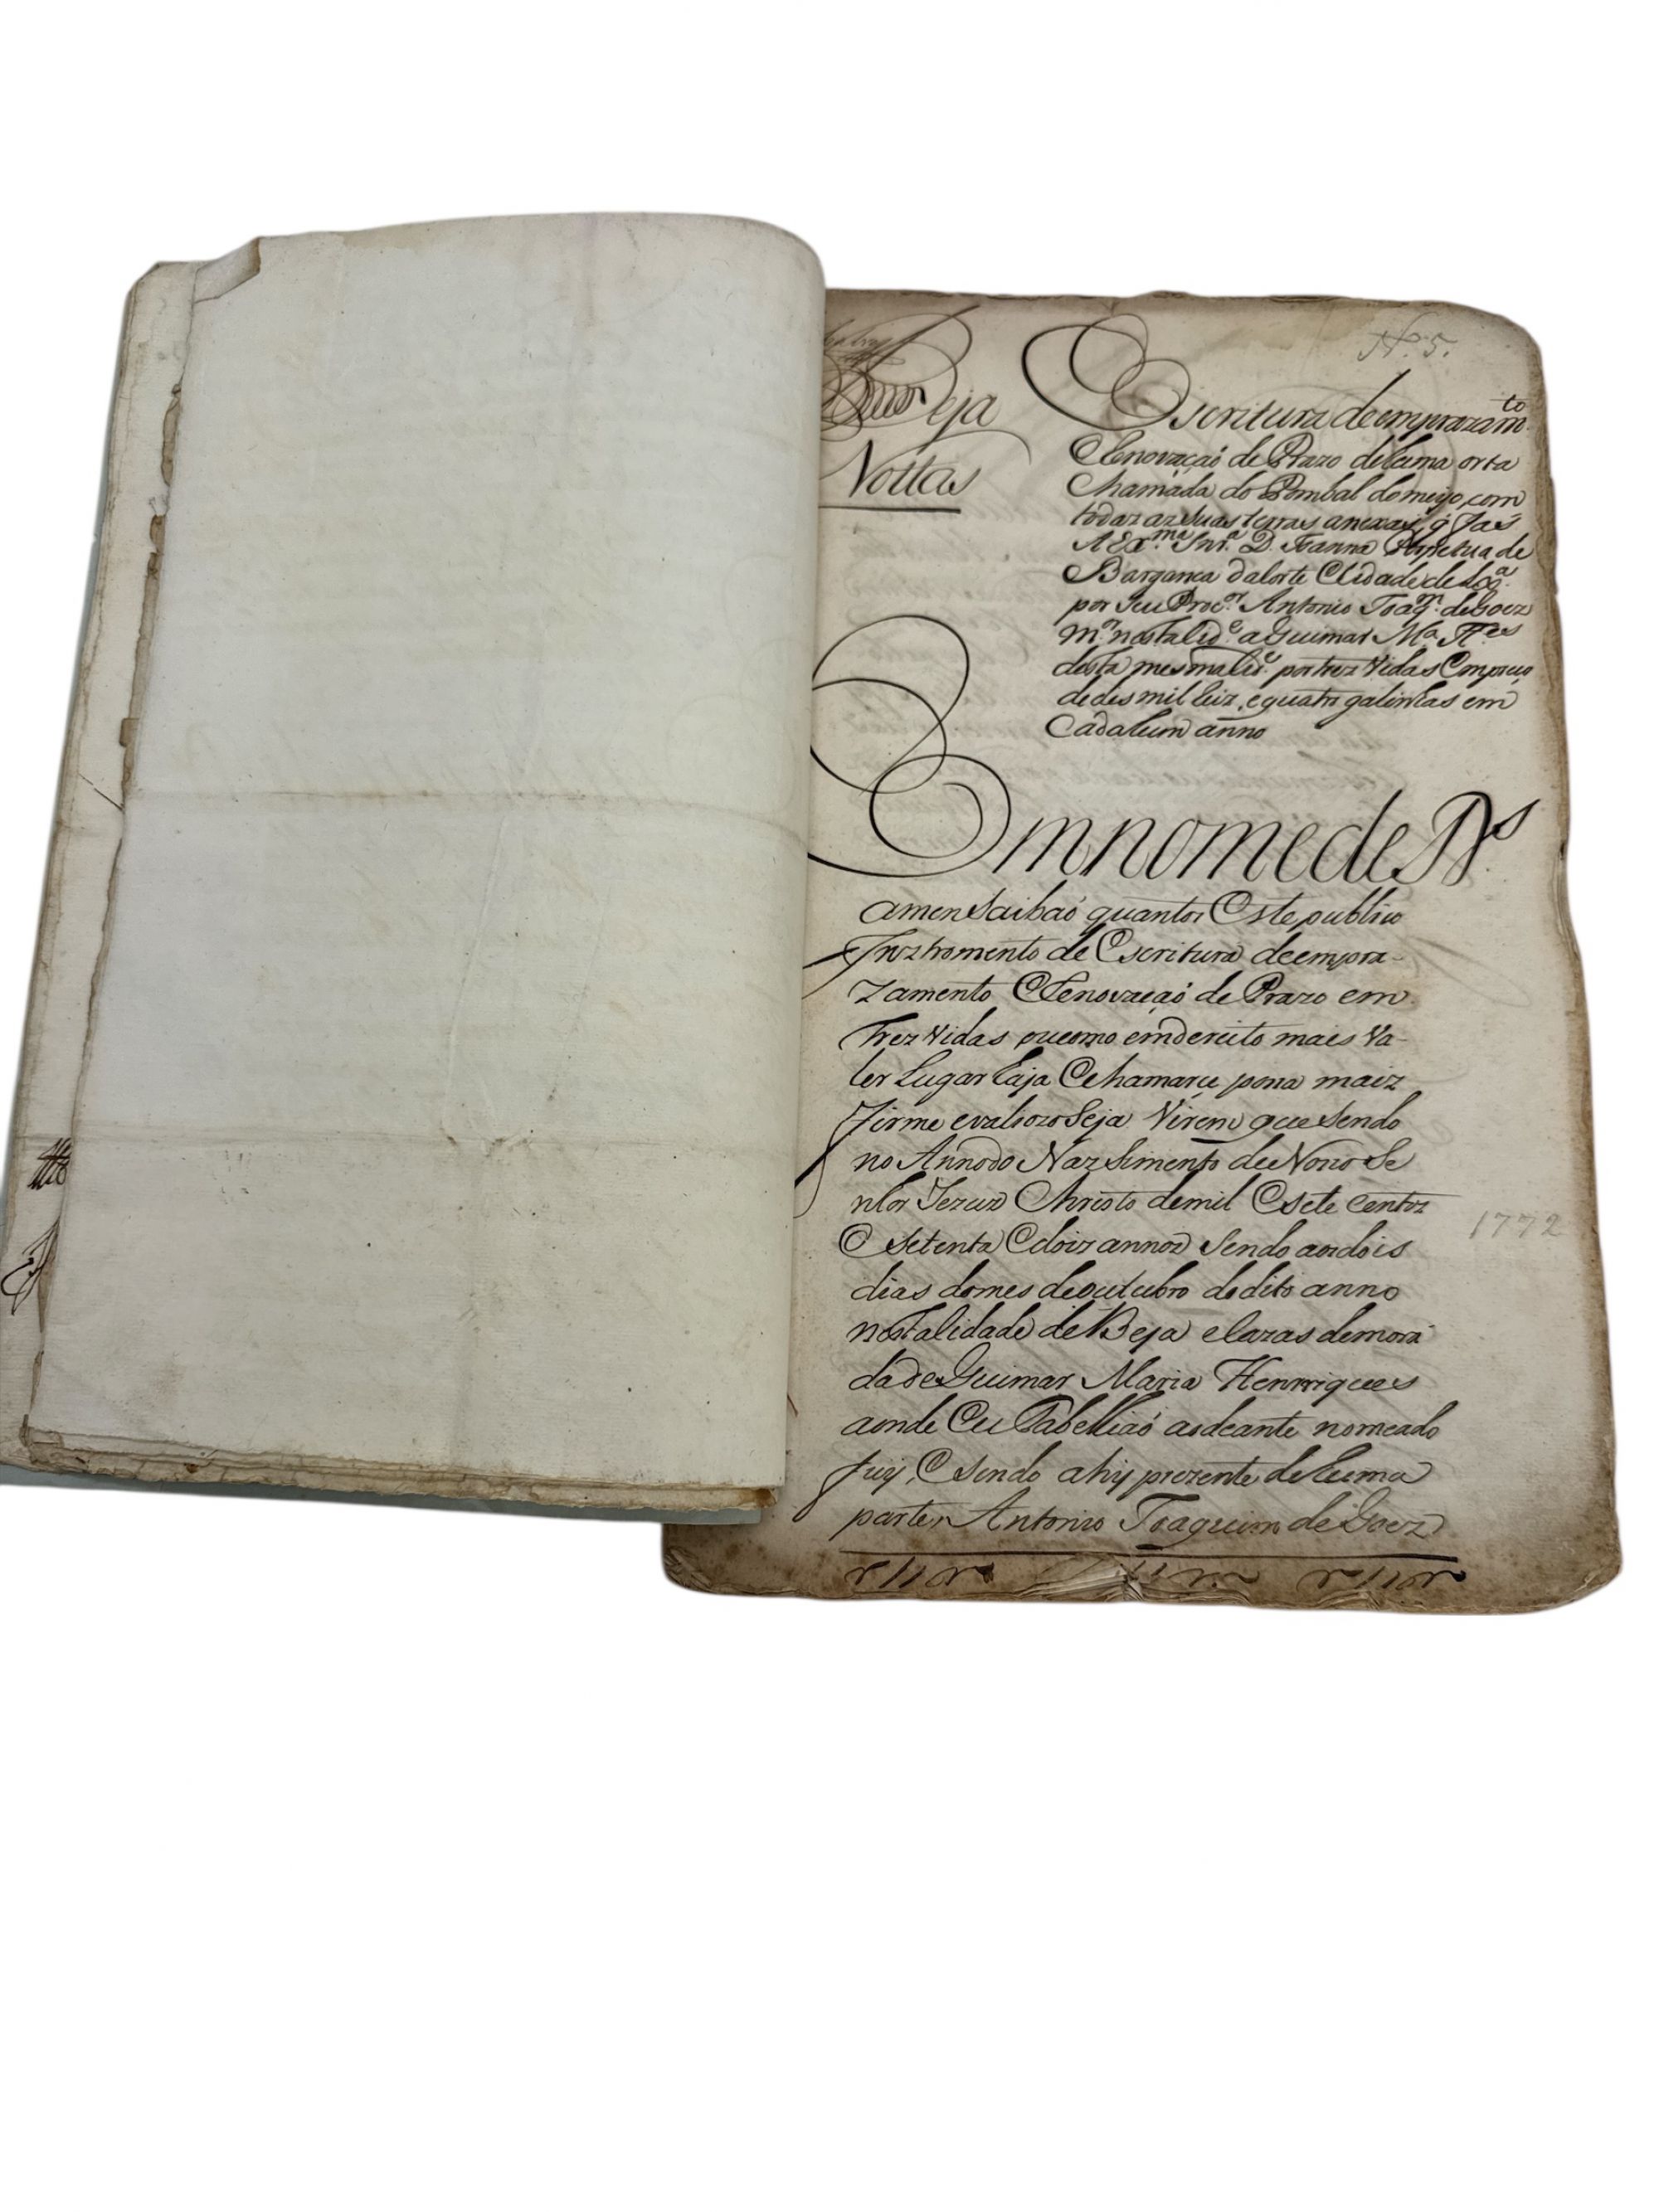 N.º 5.
Beja
Nottas
Escritura de emprazamto
E Renovaçaó de Prazo de huma orta
Chamada do Pombal do meyo, com
todaz az suas terras anexas, q̃ fas
A Exma Snra D. Joanna Perpetua de
Bargança da Corte e Cidade de Lxa
por seu Procor Antonio Joaqm de Goez
mor nesta Cide a Guimar Ma Hes
desta mesma Cide por trez Vidas Em preço
de des mil reiz, e quatro galinhas em
Cada hum anno
Em nome de Ds
amen Saibaó quantos Este publico
Inztromento de Escritura de empra-
zamento E Renovaçaó de Prazo em
trez Vidas ou como em dereito mais Va-
ler Lugar haja E chamarce possa maiz
firme e valiozo Seja Virem que Sendo
no Anno do Nazsimento de Nosso Se
nhor Jezuz Christo de mil E sete Centoz
E Setenta E doiz annoz Sendo aos dois
1772
dias do mes de outubro do dito anno
nesta Cidade de Beja e Cazas de mora
da de Guimar Maria Henrriques
aonde Eu Tabelliaó ao deante nomeado
fuy, E Sendo ahy prezente de huma
parte, Antonio Joaquim de Goez